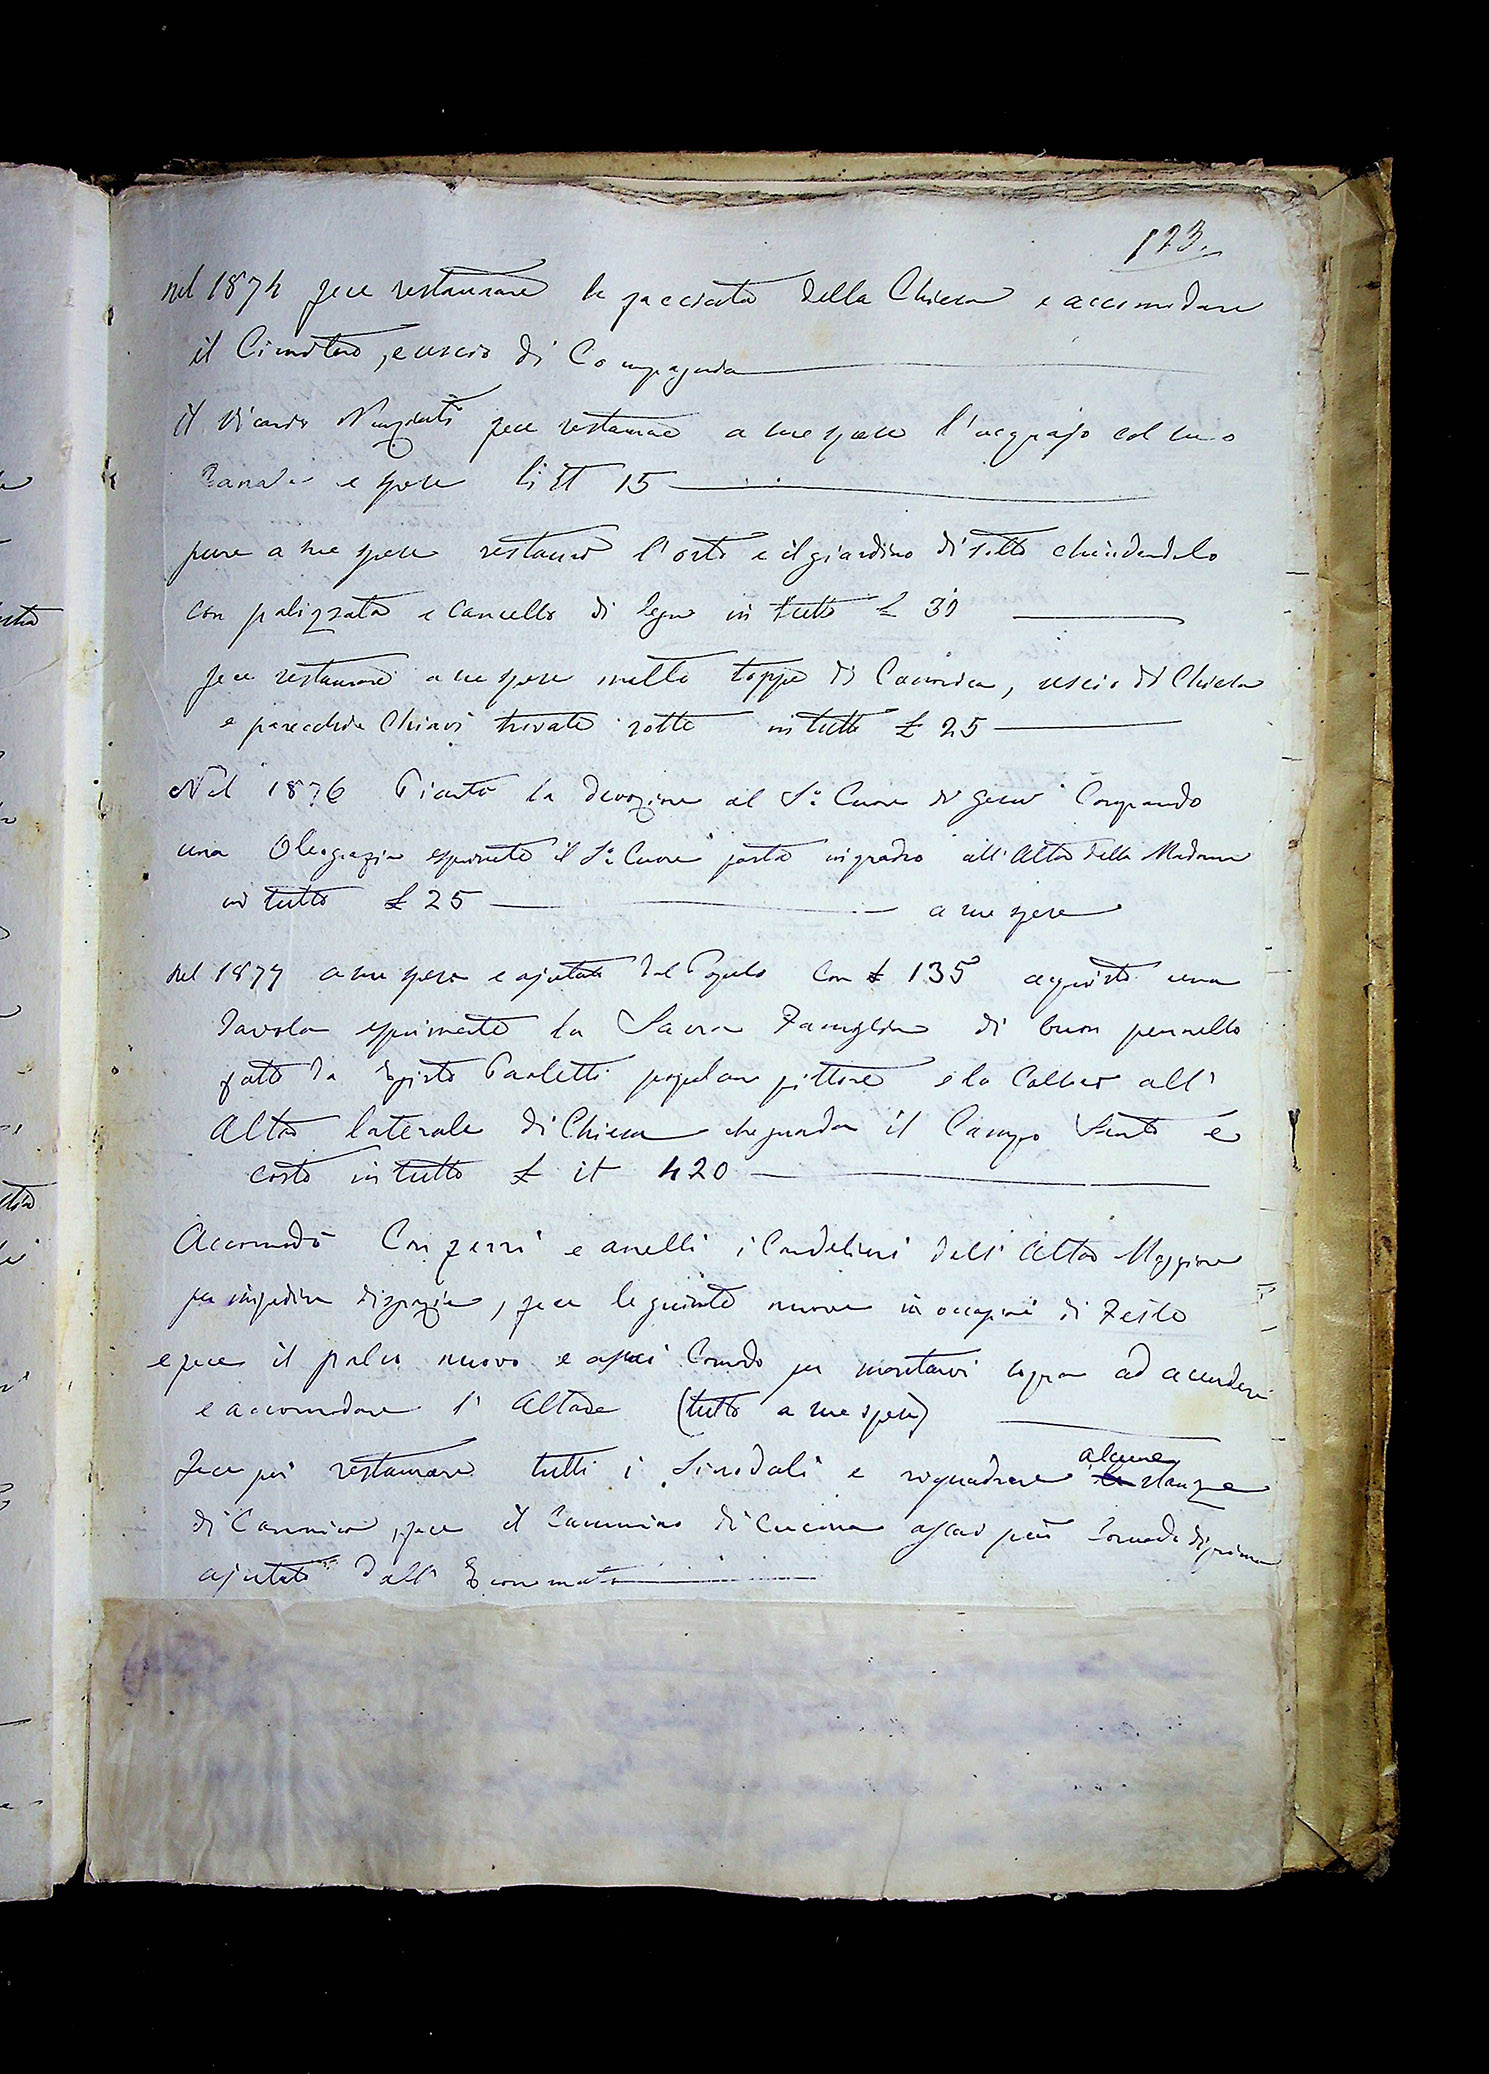 173.
nel 1874 fece restaurare la facciata della Chiesa e accomodare
il Cimitero, e uscio di Compagnia
il Vicario Nunziati fece restaurare a sue spese l'acquajo col suo
Canale e spese li It 15
pure a sue spese restaurò l'orto e il giardino di sotto chiudendolo
con palizzata e Cancello di legno in tutto £ 30
fece restaurare a sue spese molte toppe di Canonica, uscio di Chiesa
e parecchie Chiavi trovate rotte in tutto £ 25
Nel 1876 Piantò la devozione al S. Cuore di Gesù Comprando
una Oleografia esprimente il S. Cuore posta in quadro all'Altar della Madonna
in tutto £ 25 a sue spese
nel 1877 a sue spese e ajutato dal Popolo con £ 135 acquistò una
tavola esprimente la Sacra Famiglia di buon pennello
fatta da Egisto Paoletti popolano pittore e la Collocò all'
Altar laterale di Chiesa che guarda il Campo Santo e
costò in tutto £ it 420
Accomodò Con ferri e anelli i Candelieri dell'Altar Maggiore
per impedire disgrazie, fece le nuove in occasione di Feste
e fece il palco nuovo e assai Comodo per montarvi sopra ad accendere
e accomodare l'Altare (tutto a sue spese)
Fece poi restaurare tutti i Sinodali e riquadrare alcune stanze
di Canonica, fece il Cammino di Cucina assai più Comodo di prima
ajutato dall'Economato